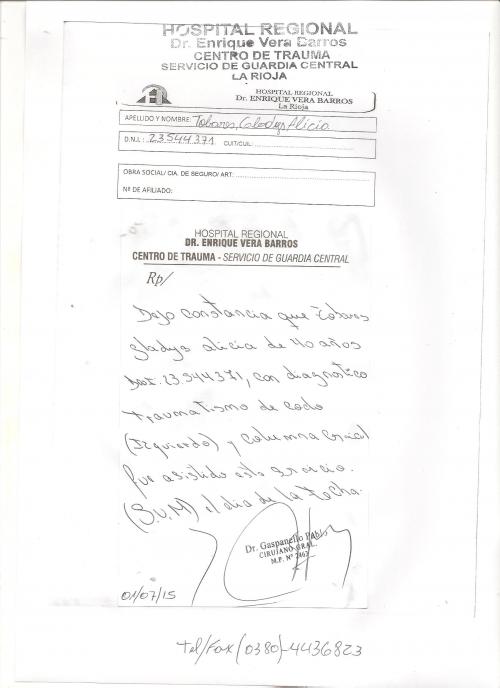 HOSPITAL REGIONAL
Dr. Enrique Vera Barros
CENTRO DE TRAUMA
SERVICIO DE GUARDIA CENTRAL
LA RIOJA
HOSPITAL REGIONAL
Dr. ENRIQUE VERA BARROS
La Rioja
APELLIDO Y NOMBRE: Tobares, Gladys Alicia
D.N.I.: 23544371 CUIT/CUIL:
OBRA SOCIAL/ CIA. DE SEGURO/ ART:
Nº DE AFILIADO:
HOSPITAL REGIONAL
DR. ENRIQUE VERA BARROS
CENTRO DE TRAUMA - SERVICIO DE GUARDIA CENTRAL
Rp/
Dejo constancia que Tobares
gladys alicia de 40 años
23.544371, con diagnostico
traumatismo de codo
(Izquierdo) y columna
fue asistido
el dia de la fecha.
Dr. Gaspanello Pablo
CIRUJANO GRAL.
M.P. Nº
01/07/15
Tel/Fax (0380)-4436823